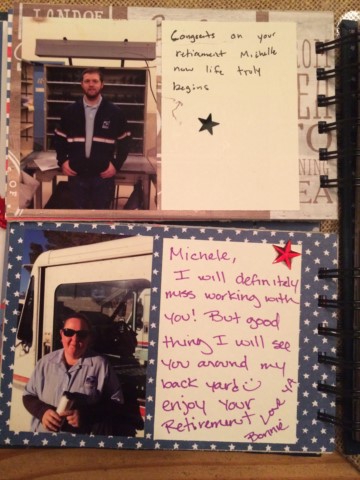 LAND OF
Congrats on your
retirement Michelle
now life truly
begins
Michele,
I will definitely
miss working with
you! But good
thing I will see
you around my
back yard
enjoy your
Retirement
Love ya
Bonnie